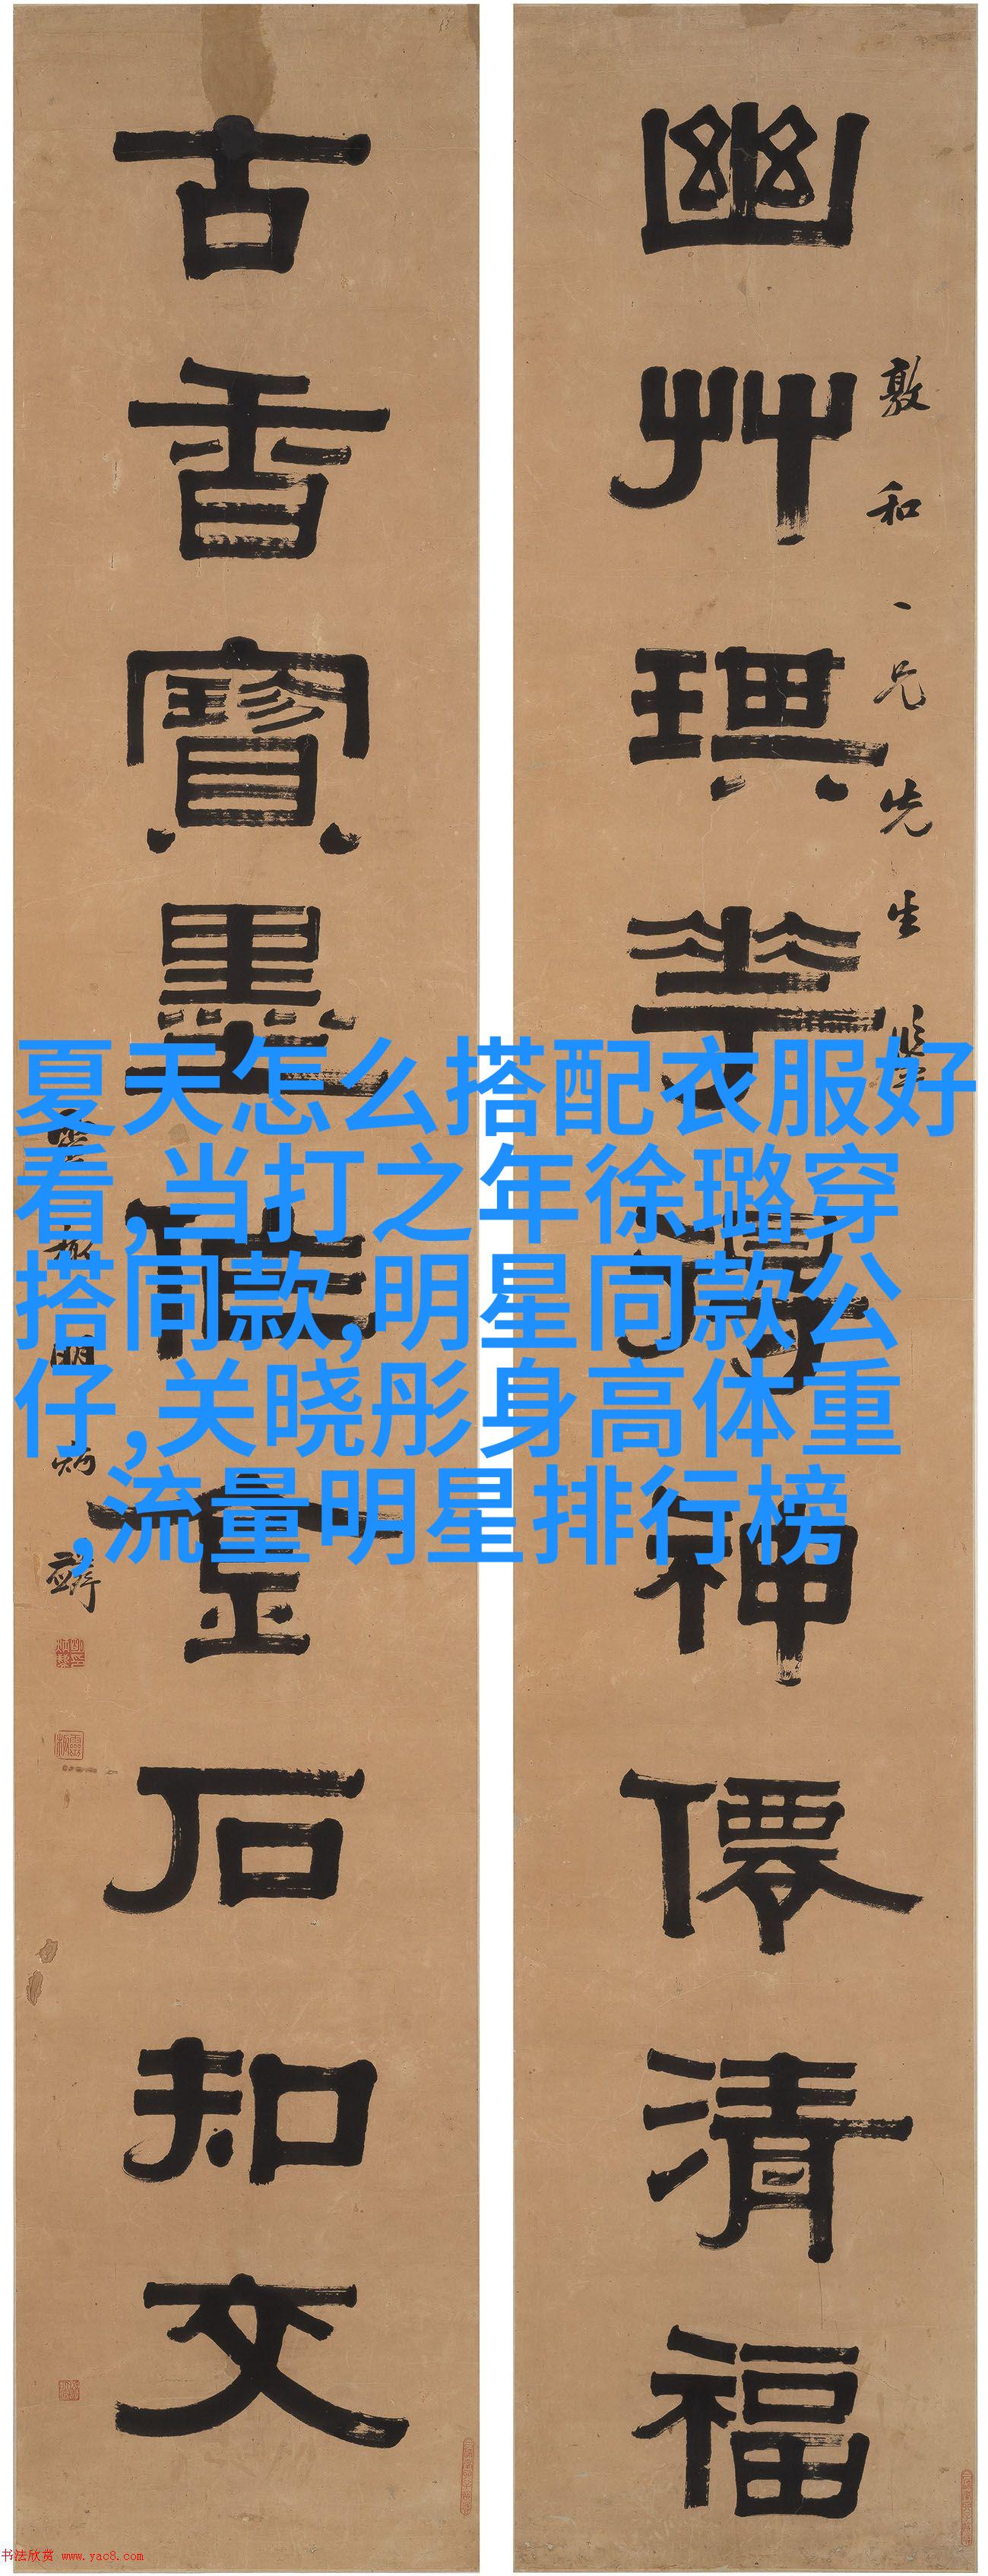 幽艸琪華神僊清福
敦和兄先生
古香寶墨金石知文
明炳麟
夏天怎么搭配衣服好
看,当打之年徐璐穿
搭同款,明星同款公
仔,关晓彤身高体重
,流量明星排行榜
书法欣赏 www.yac8.com